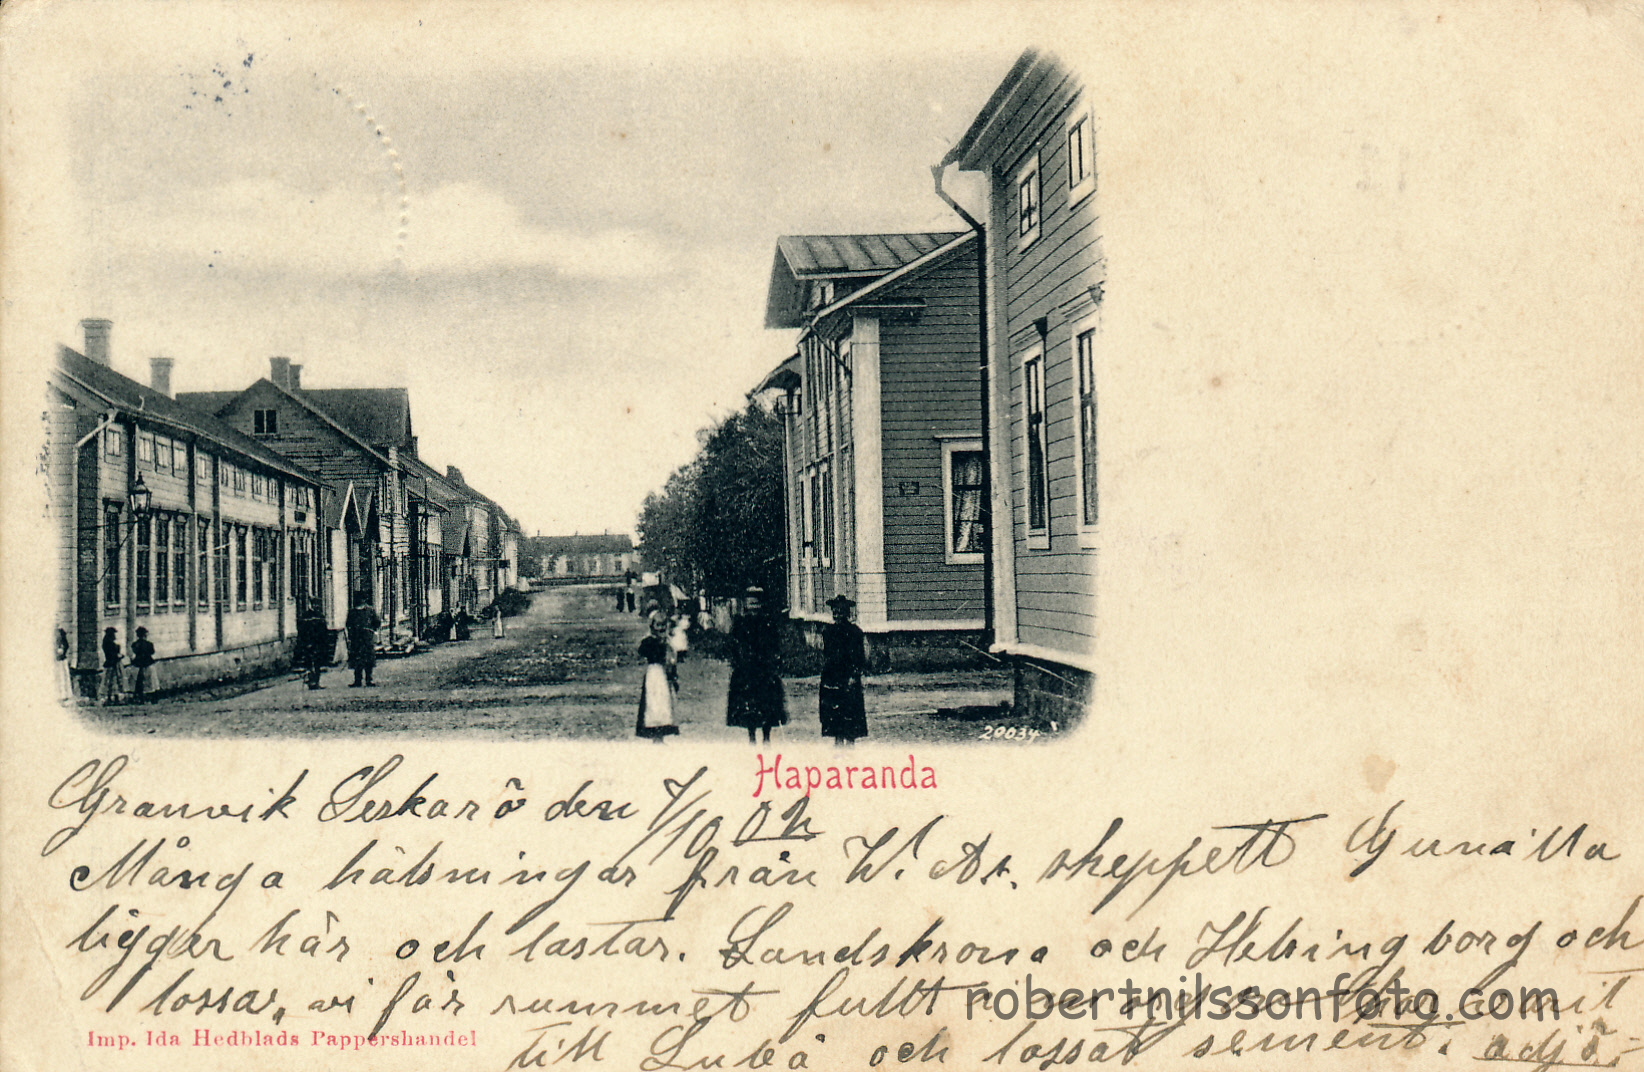 20034
Haparanda
Granvik Seskarö den 7/10 02
Många hälsningar från W. As. skeppett Gunilla
ligger här och lastar. Landskrona och Helsingborg och
lossar, vi får rummet fullt i har varit
robertnilssonfoto.com
Imp. Ida Hedblads Pappershandel
till Luleå och lossat sement. adjö